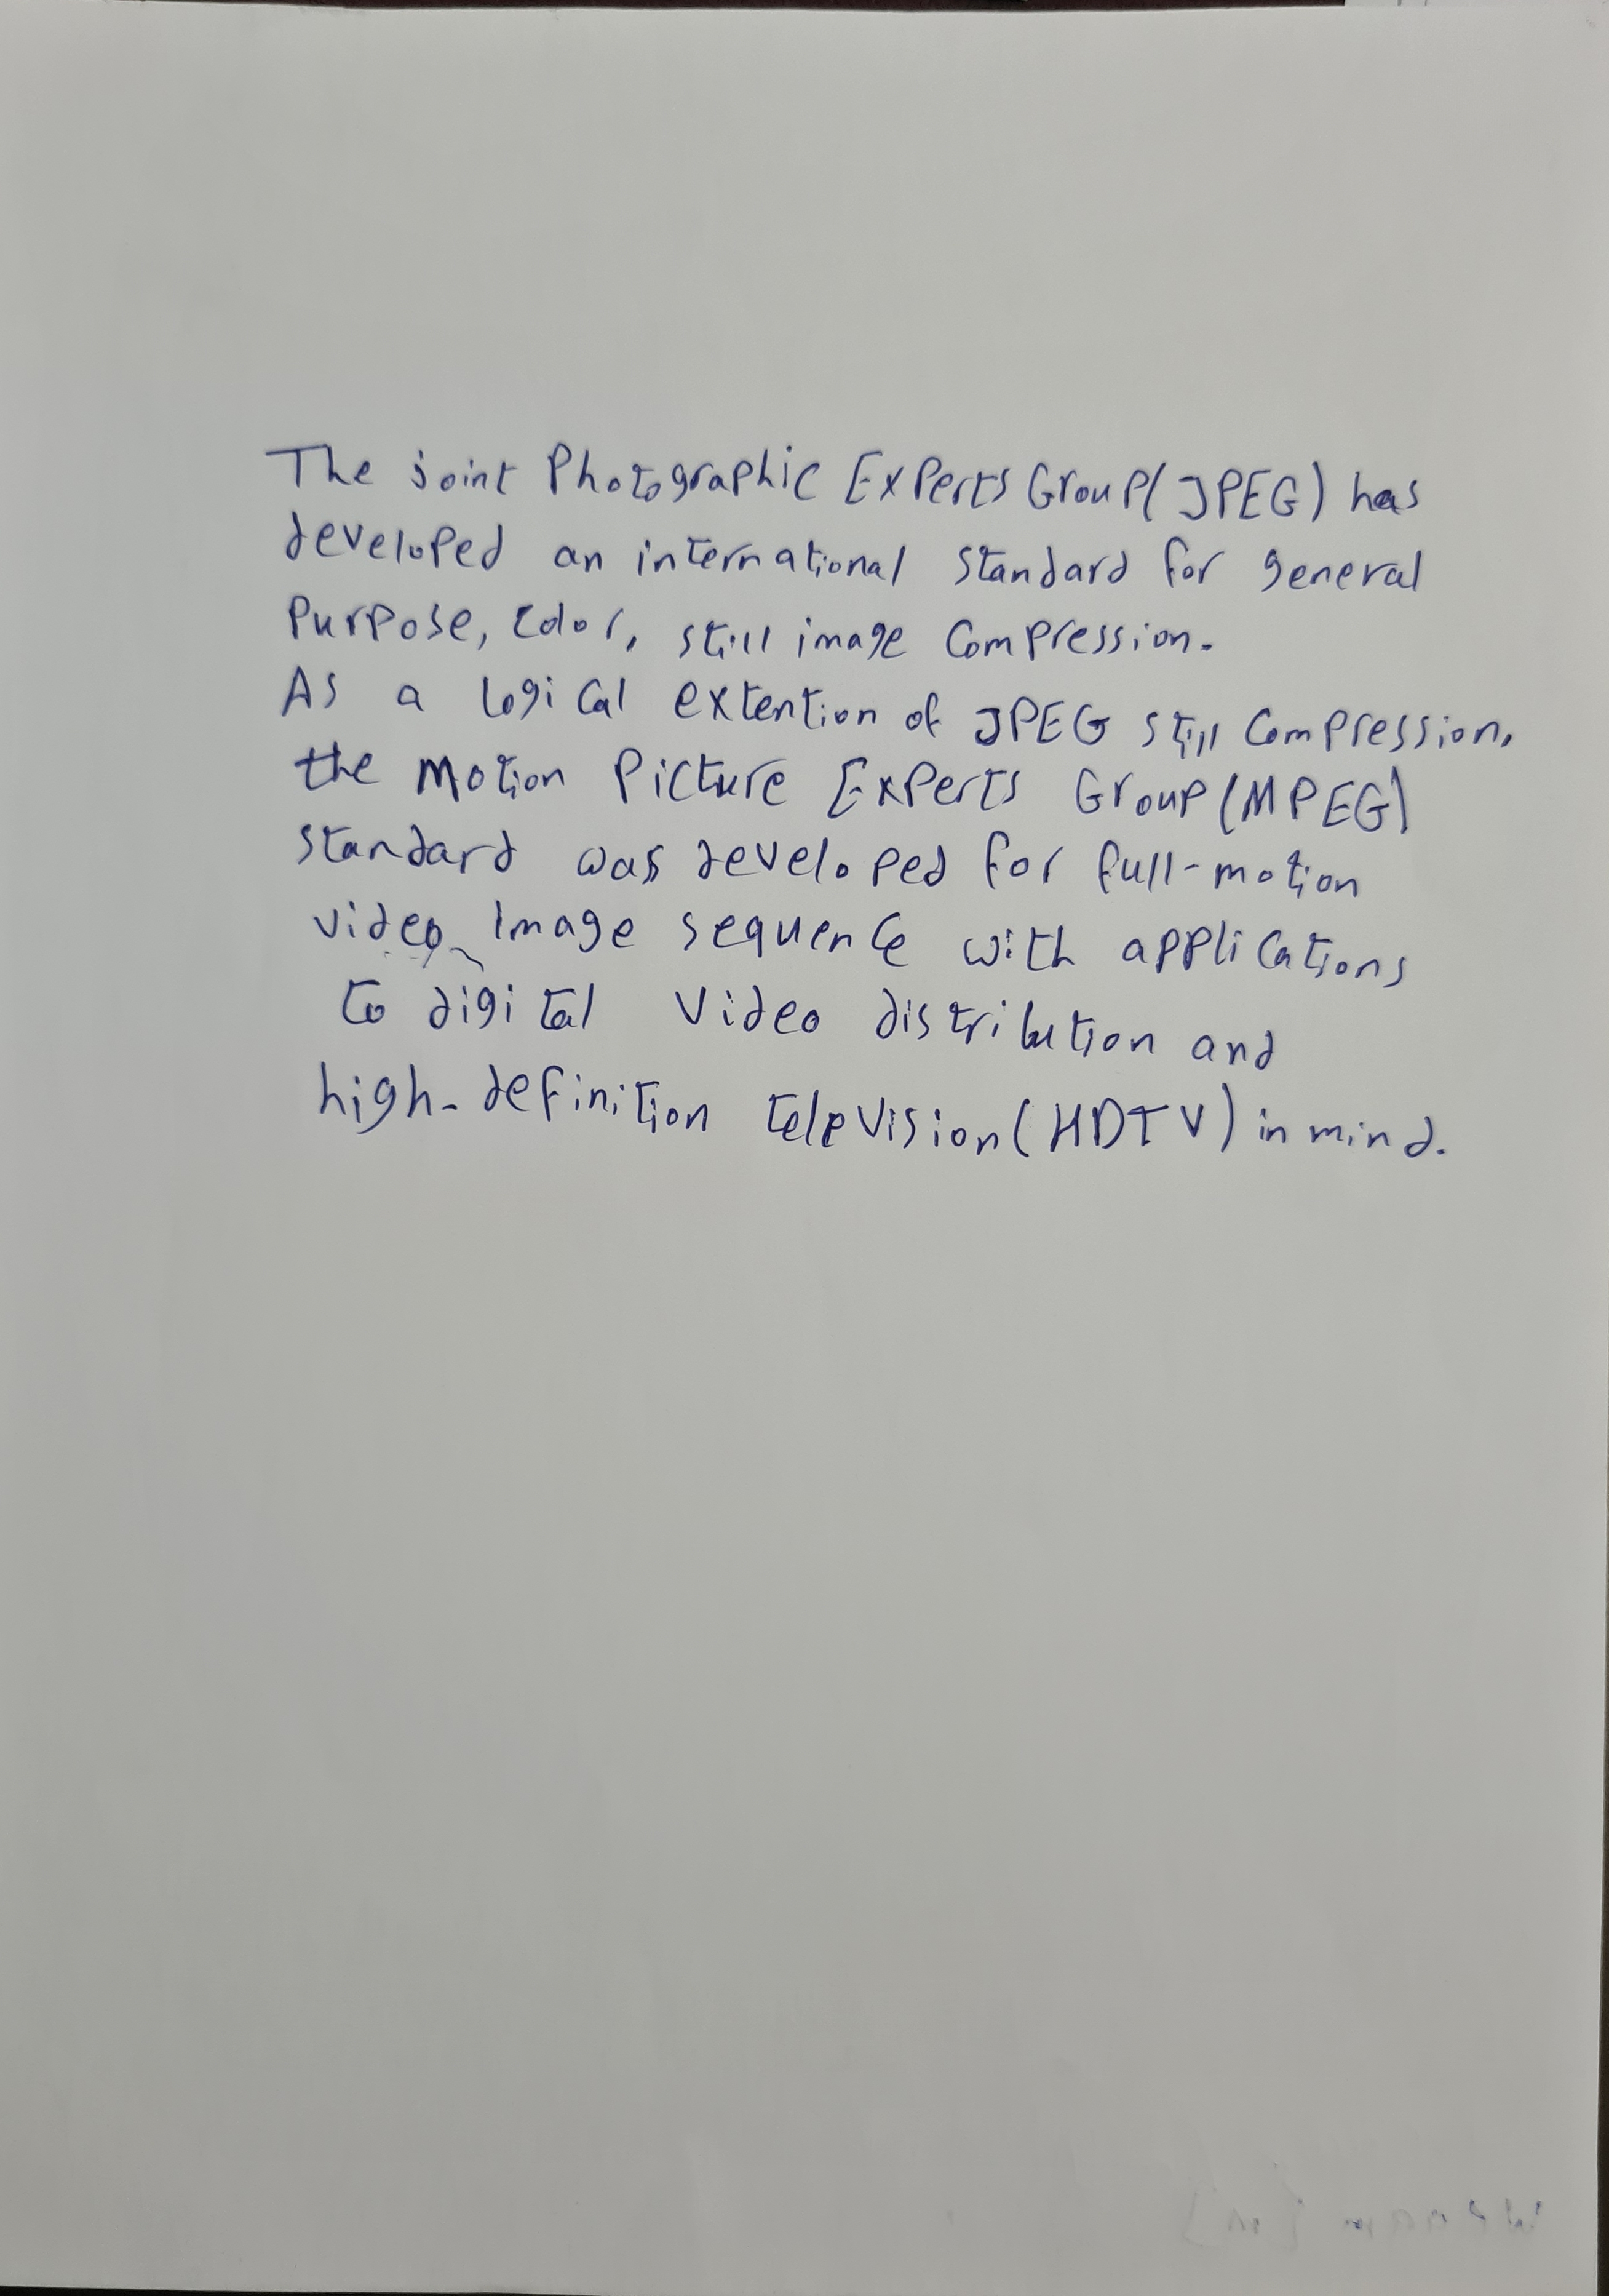 The joint Photographic Experts Group (JPEG) has
developed an international standard for general
Purpose, color, still image Compression.
As a logical extention of JPEG still Compression,
the Motion Picture Experts Group (MPEG)
standard was developed for full-motion
video image sequence with applications
to digital video distribution and
high-definition television (HDTV) in mind.